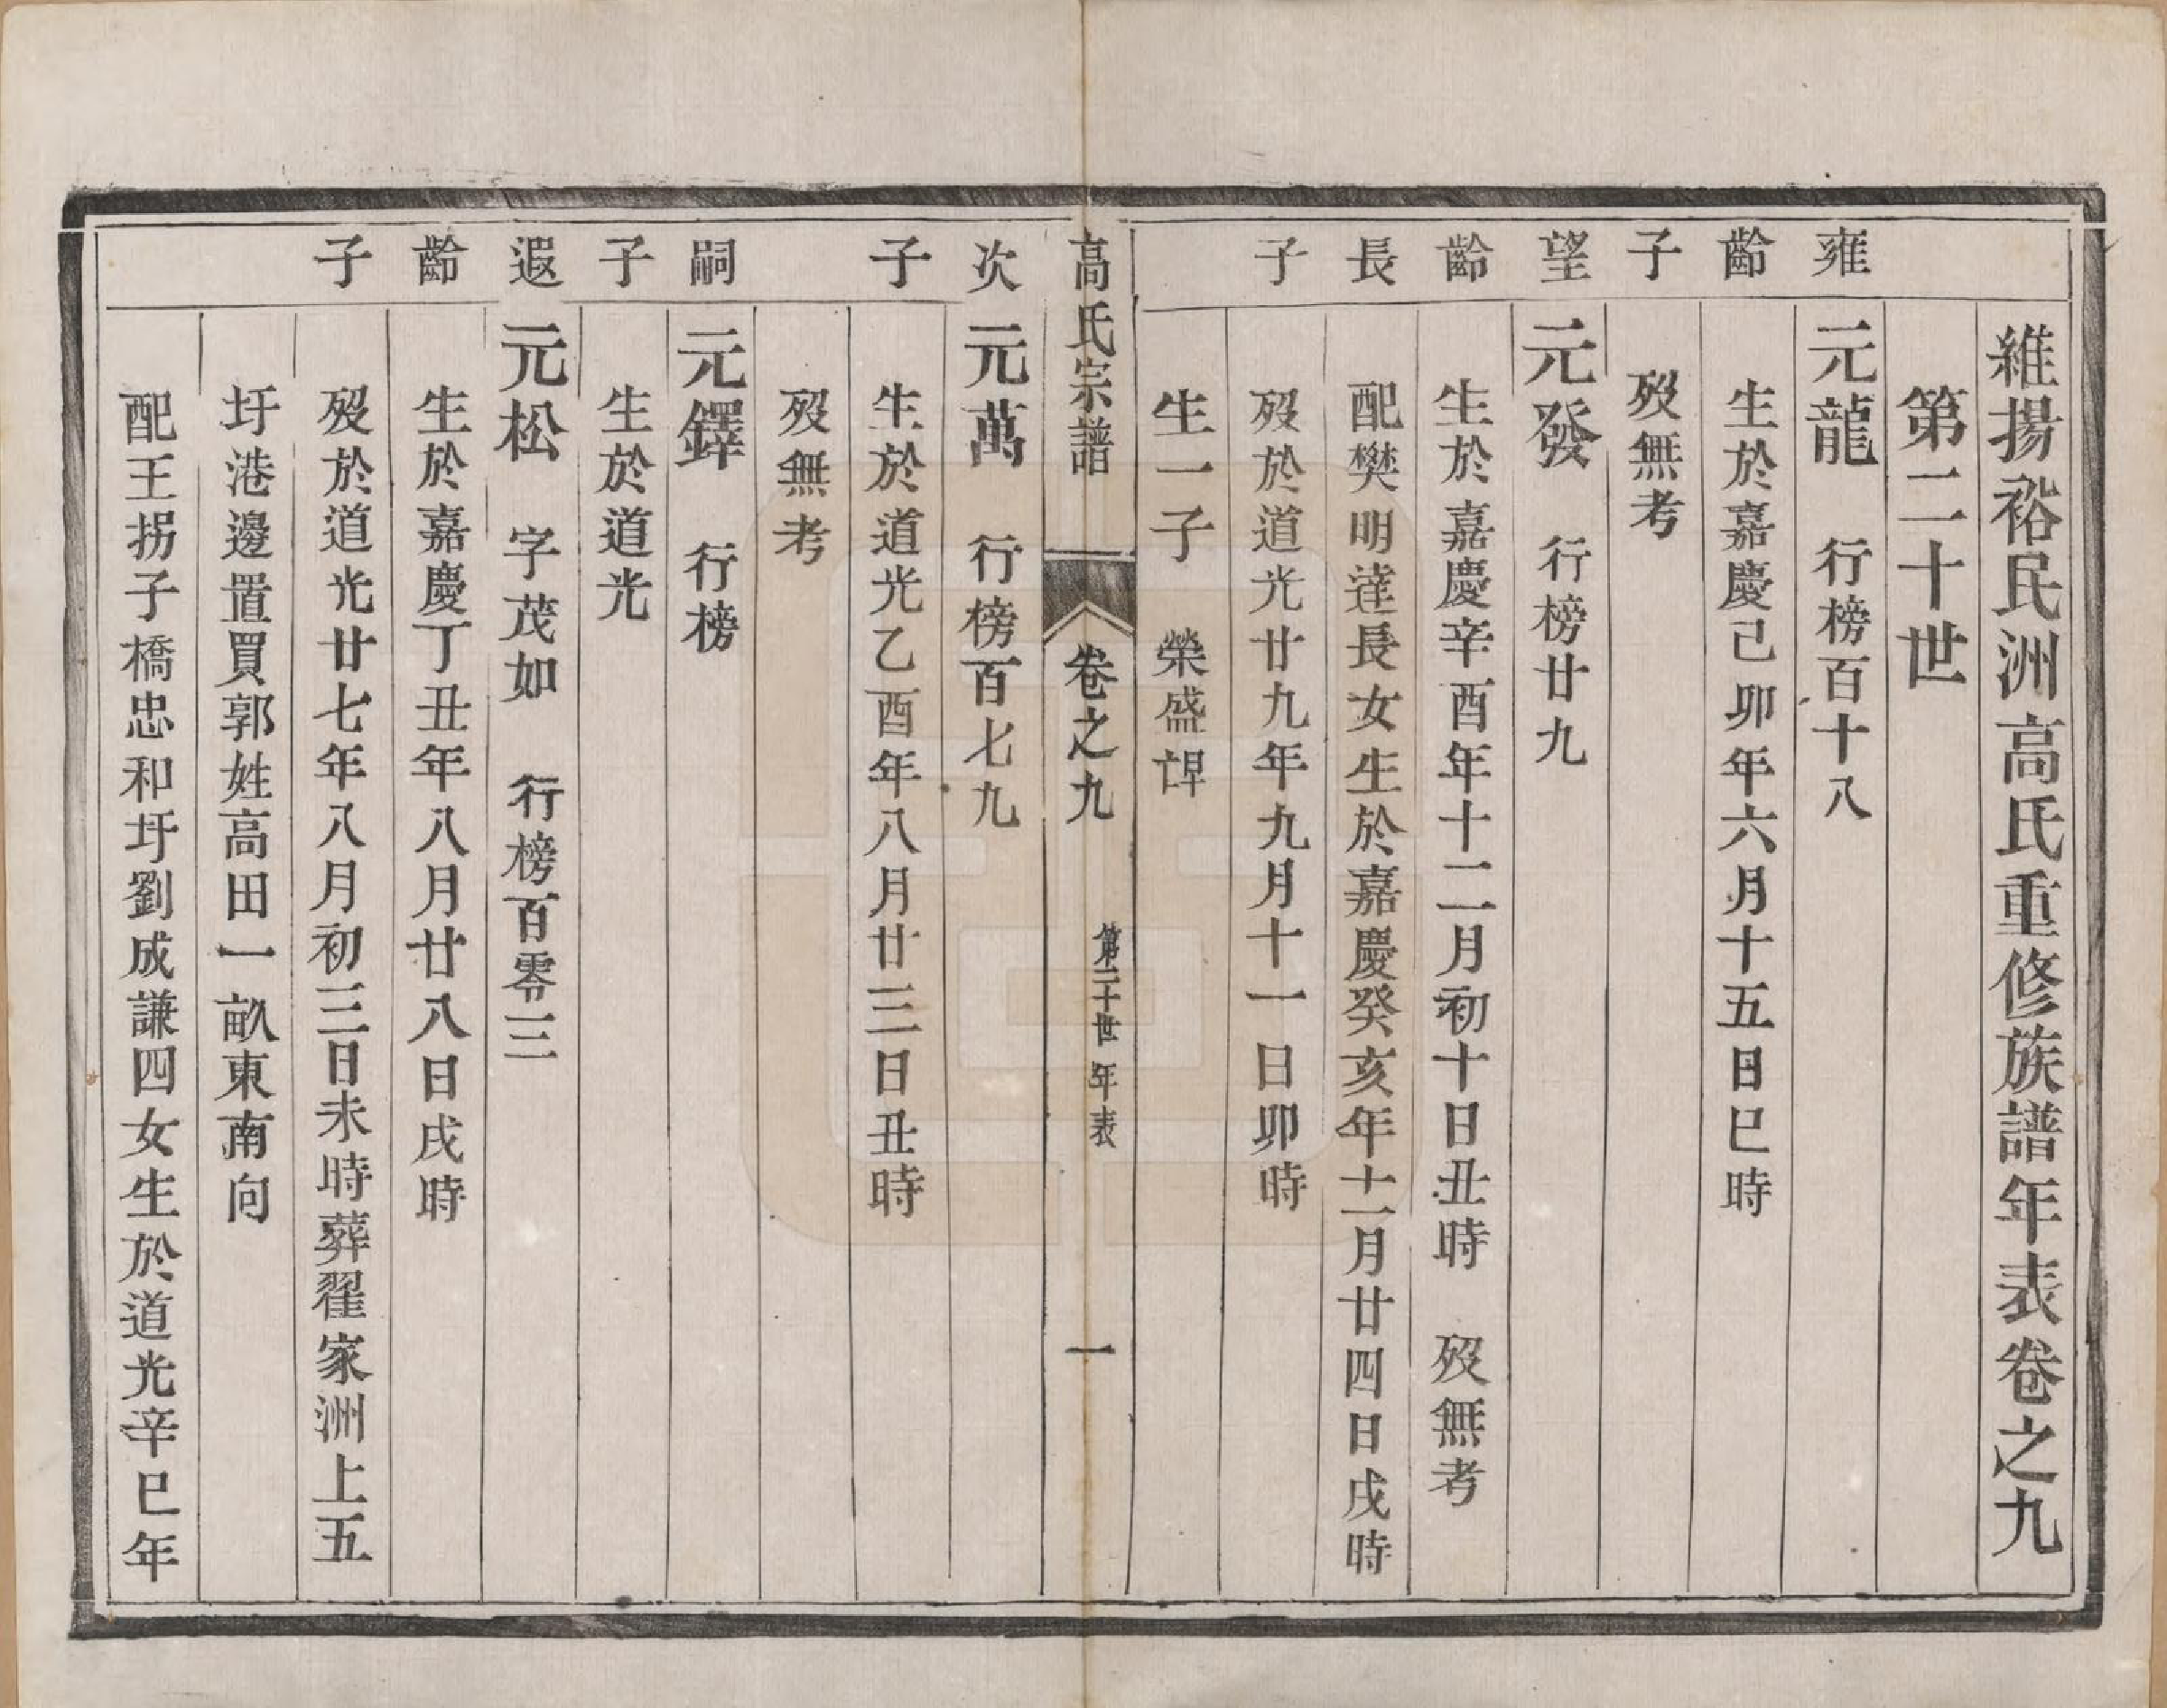 維揚裕民洲高氏重修族譜年表卷之九
第二十世
雍齡子
元龍 行榜百十八
生於嘉慶己卯年六月十五日巳時
歿無考
望齡長子
元發 行榜廿九
生於嘉慶辛酉年十二月初十日丑時 歿無考
配樊明達長女生於嘉慶癸亥年十一月廿四日戌時
歿於道光廿九年九月十一日卯時
生一子 榮盛
高氏宗譜 卷之九 第二十世年表 一
次子
元萬 行榜百七九
生於道光乙酉年八月廿三日丑時
歿無考
嗣子
元鐸 行榜
生於道光
遐齡子
元松 字茂如 行榜百零三
生於嘉慶丁丑年八月廿八日戌時
歿於道光廿七年八月初三日未時葬翟家洲上五
圩港邊置買郭姓高田一畝東南向
配王拐子橋忠和圩劉成謙四女生於道光辛巳年